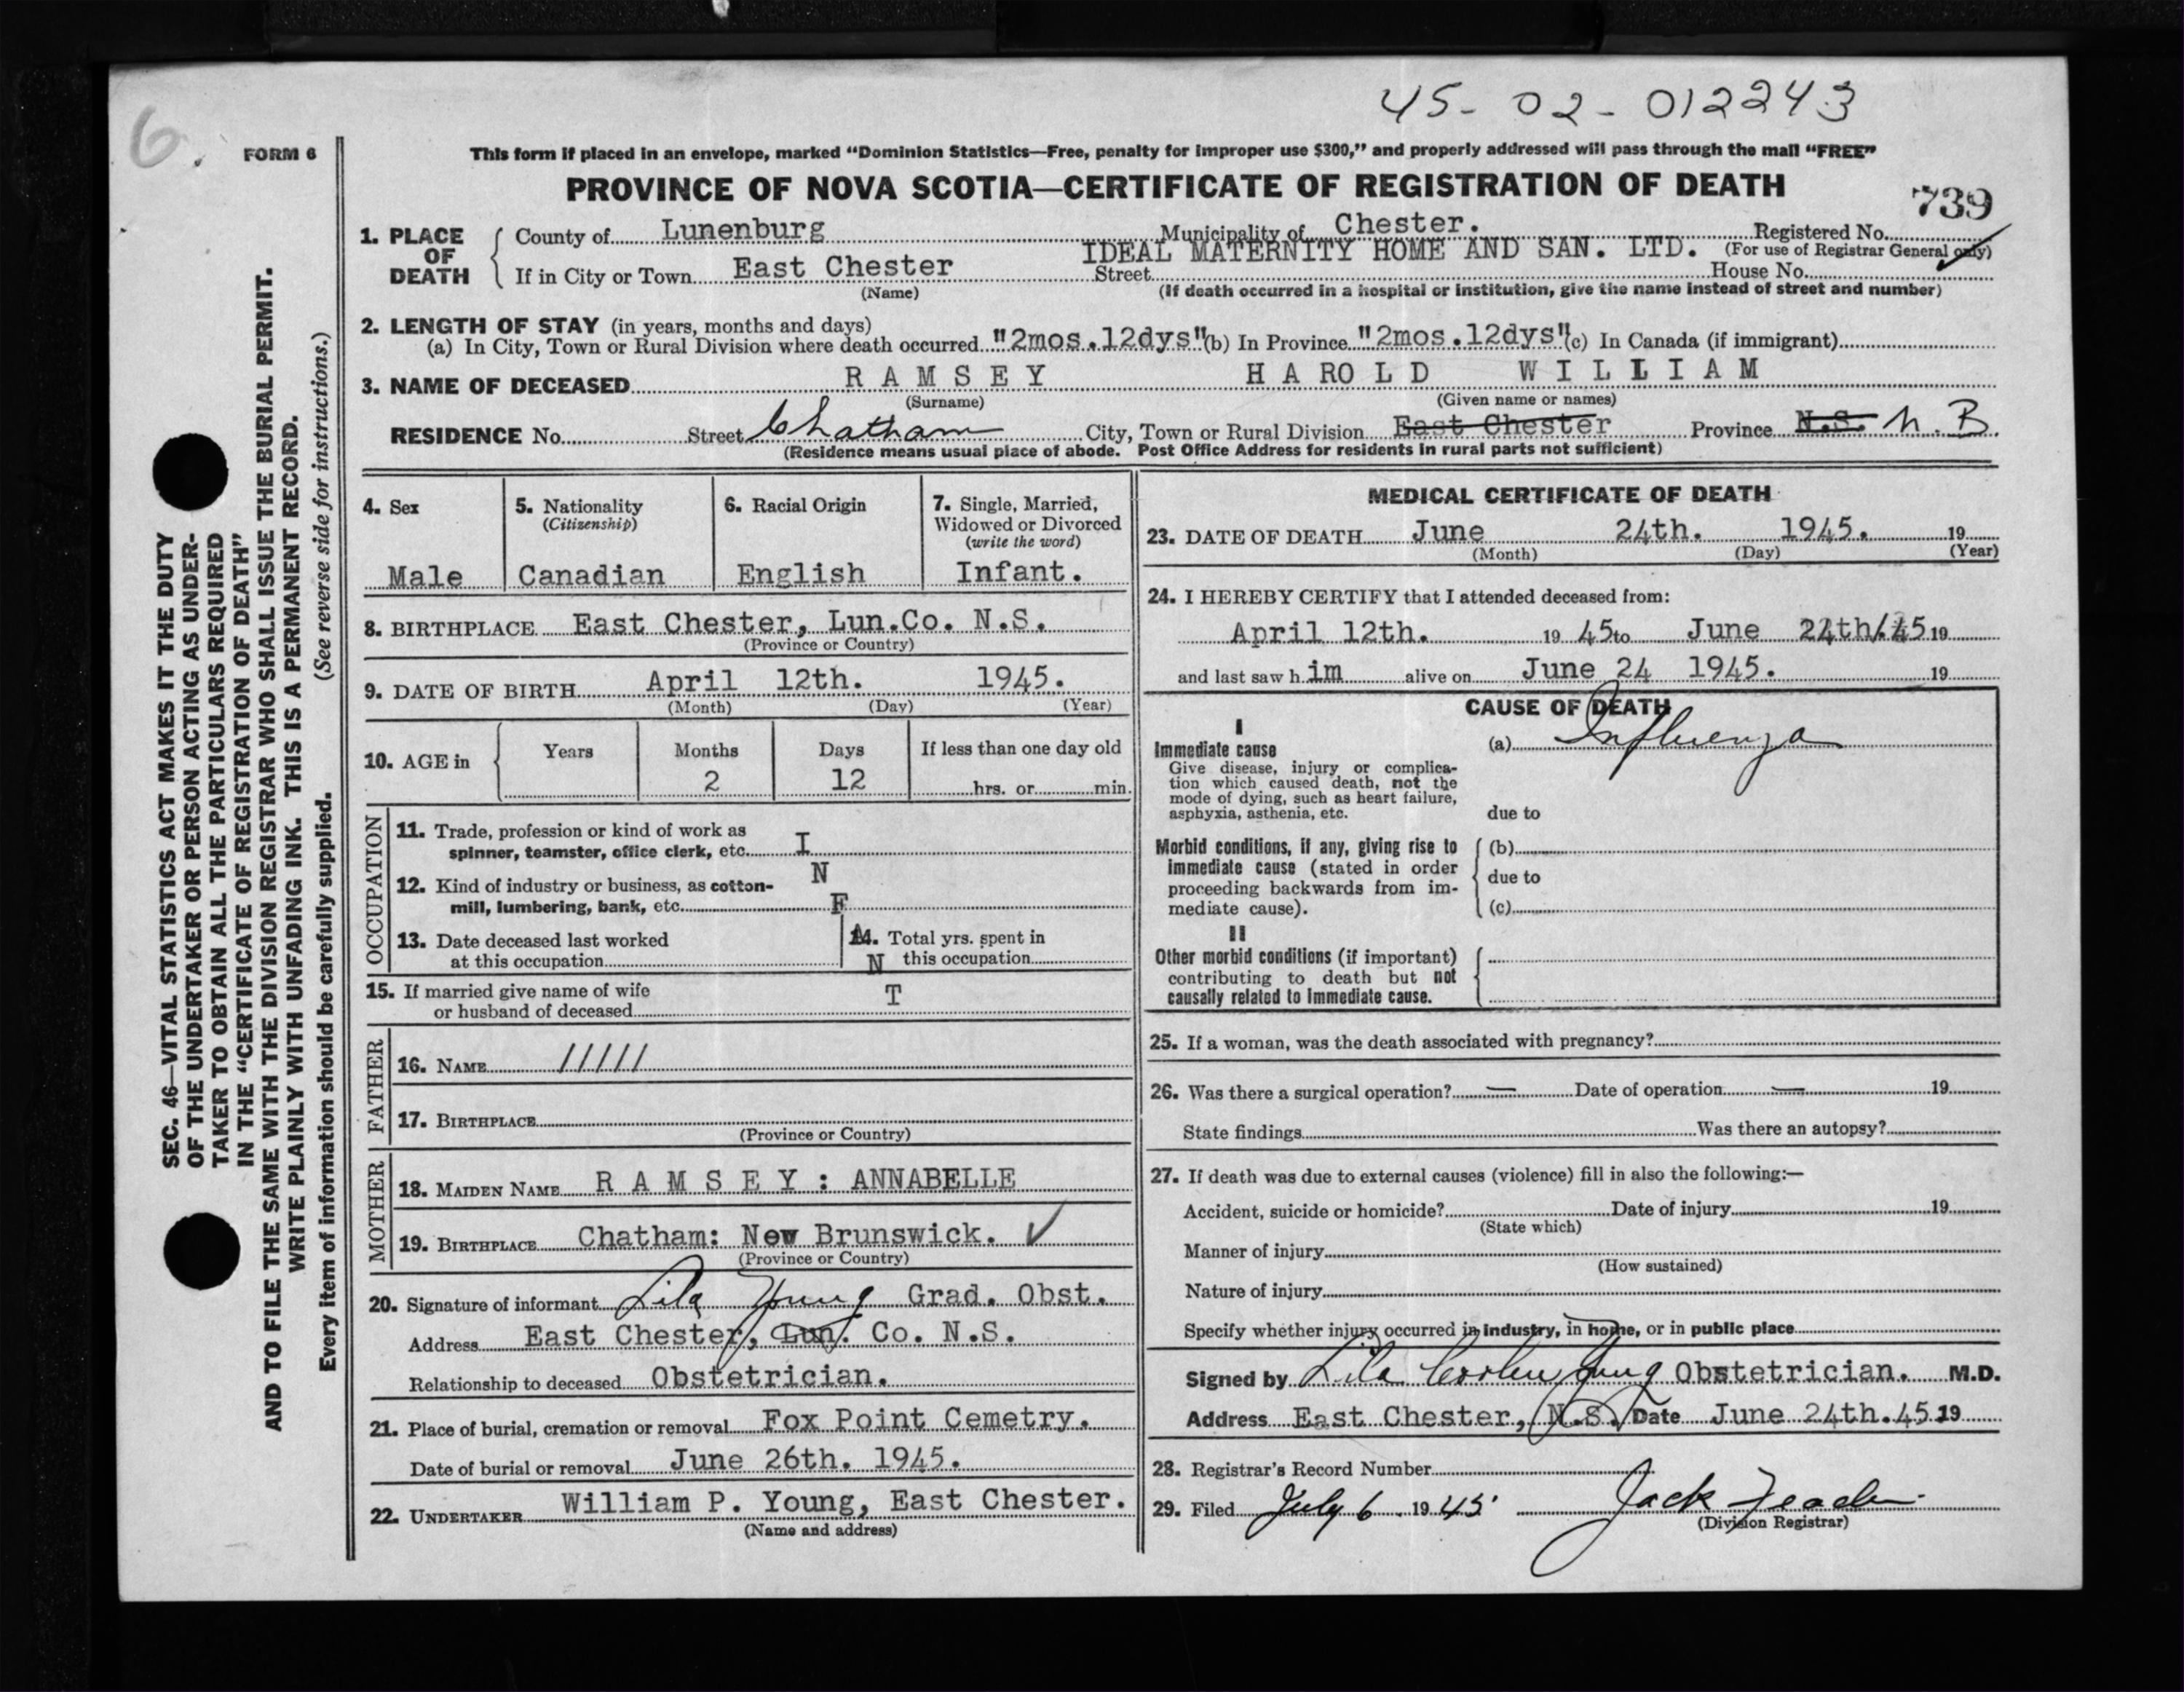 45-02-012243
6.
FORM 6
This form if placed in an envelope, marked "Dominion Statistics—Free, penalty for improper use $300," and properly addressed will pass through the mail "FREE"
PROVINCE OF NOVA SCOTIA—CERTIFICATE OF REGISTRATION OF DEATH
739
1. PLACE OF DEATH
County of Lunenburg Municipality of Chester. Registered No.
IDEAL MATERNITY HOME AND SAN. LTD. (For use of Registrar General only)
If in City or Town East Chester Street House No.
(Name) (If death occurred in a hospital or institution, give the name instead of street and number)
2. LENGTH OF STAY (in years, months and days)
(a) In City, Town or Rural Division where death occurred "2mos.12dys" (b) In Province "2mos.12dys" (c) In Canada (if immigrant)
3. NAME OF DECEASED R A M S E Y H A RO L D W I L L I A M
(Surname) (Given name or names)
RESIDENCE No. Street Chatham City, Town or Rural Division East Chester Province N.S. N.B.
(Residence means usual place of abode. Post Office Address for residents in rural parts not sufficient)
4. Sex
Male
5. Nationality
(Citizenship)
Canadian
6. Racial Origin
English
7. Single, Married,
Widowed or Divorced
(write the word)
Infant.
8. BIRTHPLACE East Chester, Lun.Co. N.S.
(Province or Country)
9. DATE OF BIRTH April 12th. 1945.
(Month) (Day) (Year)
10. AGE in
Years Months Days If less than one day old
2 12 hrs. or min.
OCCUPATION
11. Trade, profession or kind of work as
spinner, teamster, office clerk, etc. I
N
12. Kind of industry or business, as cotton-
mill, lumbering, bank, etc. F
A
13. Date deceased last worked
at this occupation
14. Total yrs. spent in
N this occupation
15. If married give name of wife T
or husband of deceased
FATHER
16. NAME /////
17. BIRTHPLACE
(Province or Country)
MOTHER
18. MAIDEN NAME R A M S E Y : ANNABELLE
19. BIRTHPLACE Chatham: New Brunswick. ✓
(Province or Country)
20. Signature of informant Lila Young Grad. Obst.
Address East Chester, Lun. Co. N.S.
Relationship to deceased Obstetrician.
21. Place of burial, cremation or removal Fox Point Cemetry.
Date of burial or removal June 26th. 1945.
22. UNDERTAKER William P. Young, East Chester.
(Name and address)
MEDICAL CERTIFICATE OF DEATH
23. DATE OF DEATH June 24th. 1945. 19
(Month) (Day) (Year)
24. I HEREBY CERTIFY that I attended deceased from:
April 12th. 19 45 to June 24th/45 19
and last saw h im alive on June 24 1945. 19
CAUSE OF DEATH
I
Immediate cause
Give disease, injury or complica-
tion which caused death, not the
mode of dying, such as heart failure,
asphyxia, asthenia, etc.
(a) Influenza
due to
Morbid conditions, if any, giving rise to
immediate cause (stated in order
proceeding backwards from im-
mediate cause).
(b)
due to
(c)
II
Other morbid conditions (if important)
contributing to death but not
causally related to immediate cause.
25. If a woman, was the death associated with pregnancy?
26. Was there a surgical operation? — Date of operation — 19
State findings Was there an autopsy?
27. If death was due to external causes (violence) fill in also the following:—
Accident, suicide or homicide? Date of injury 19
(State which)
Manner of injury
(How sustained)
Nature of injury
Specify whether injury occurred in industry, in home, or in public place
Signed by Lila Coolen Young Obstetrician. M.D.
Address East Chester, N.S. Date June 24th.45 19
28. Registrar's Record Number
29. Filed July 6 1945 Jack
(Division Registrar)
SEC. 46—VITAL STATISTICS ACT MAKES IT THE DUTY
OF THE UNDERTAKER OR PERSON ACTING AS UNDER-
TAKER TO OBTAIN ALL THE PARTICULARS REQUIRED
IN THE "CERTIFICATE OF REGISTRATION OF DEATH"
AND TO FILE THE SAME WITH THE DIVISION REGISTRAR WHO SHALL ISSUE THE BURIAL PERMIT.
WRITE PLAINLY WITH UNFADING INK. THIS IS A PERMANENT RECORD.
(See reverse side for instructions.)
Every item of information should be carefully supplied.